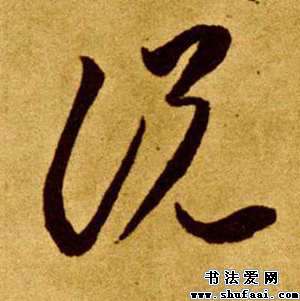 况
书法爱网
www.shufaai.com